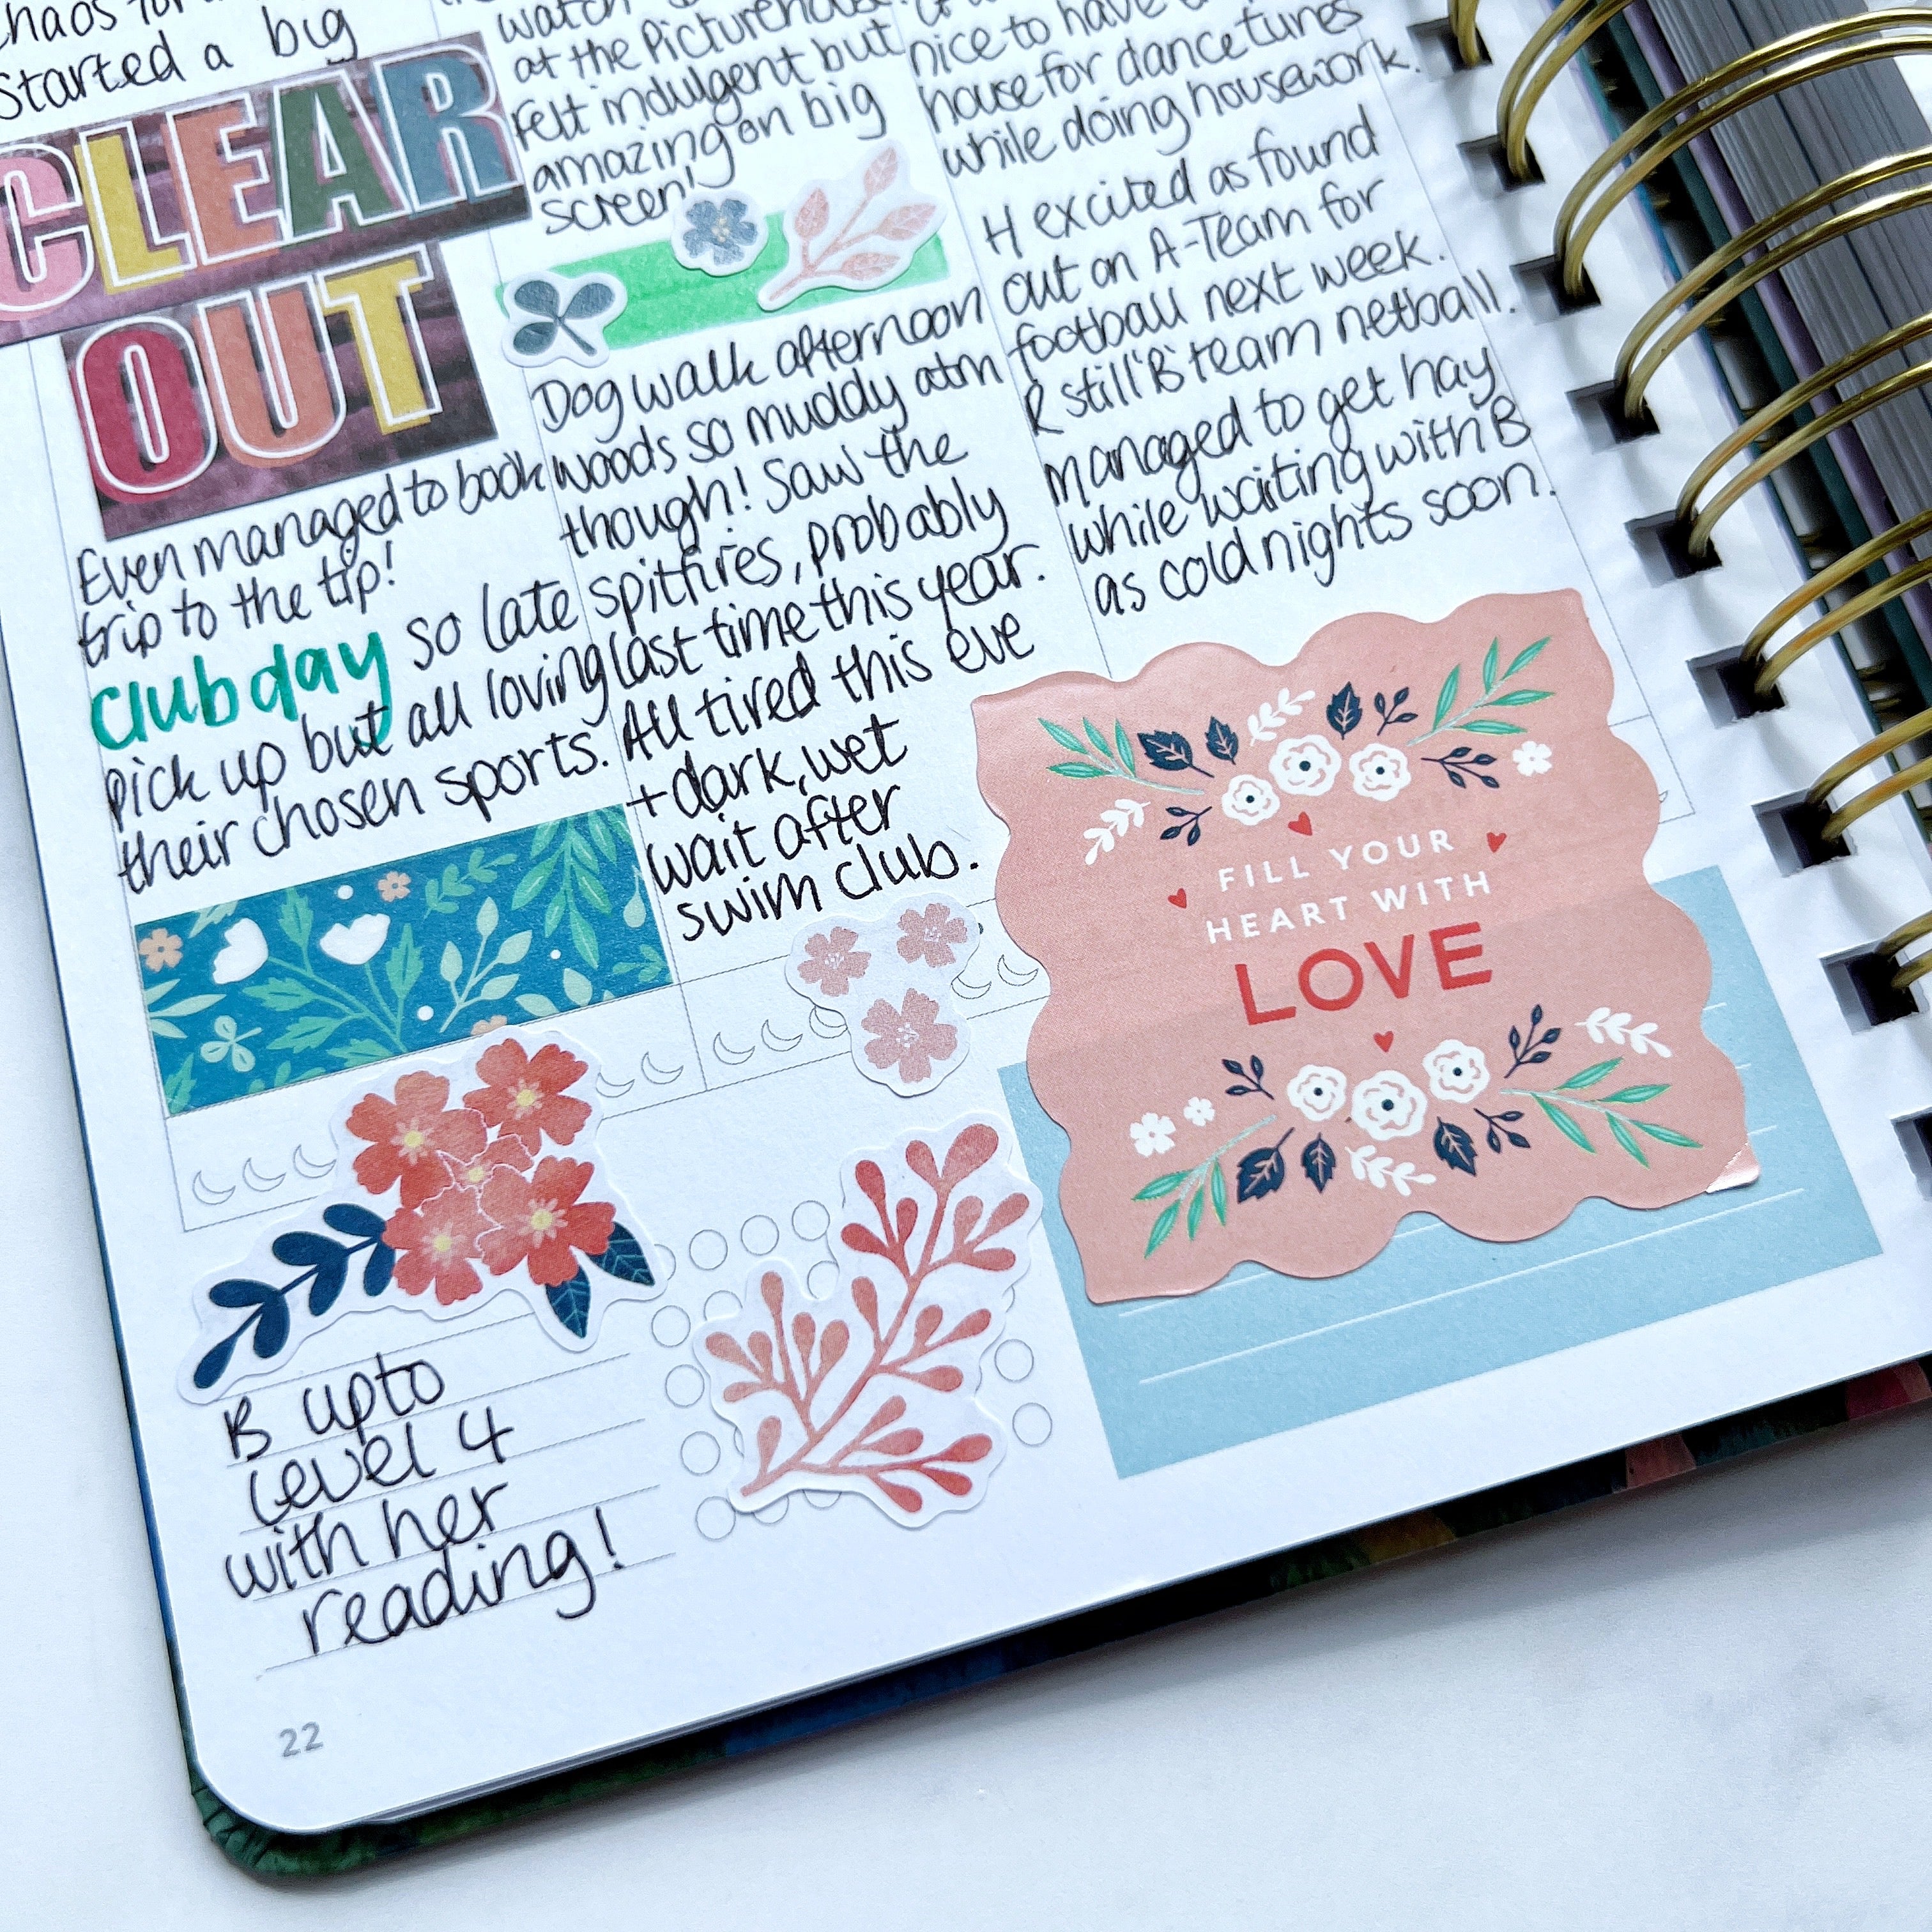 started a big
CLEAR
OUT
Even managed to book
trip to the tip!
clubday so late
pick up but all loving
their chosen sports.
at the Picturehouse.
felt indulgent but
amazing on big
screen!
Dog walk afternoon
woods so muddy atm
though! Saw the
spitfires, probably
last time this year.
All tired this eve
+ dark, wet
wait after
swim club.
nice to have
house for dance tunes
while doing housework.
H excited as found
out on A-Team for
football next week.
R still 'B' team netball.
managed to get hay
while waiting with B
as cold nights soon.
FILL YOUR
HEART WITH
LOVE
B upto
Level 4
with her
reading!
22